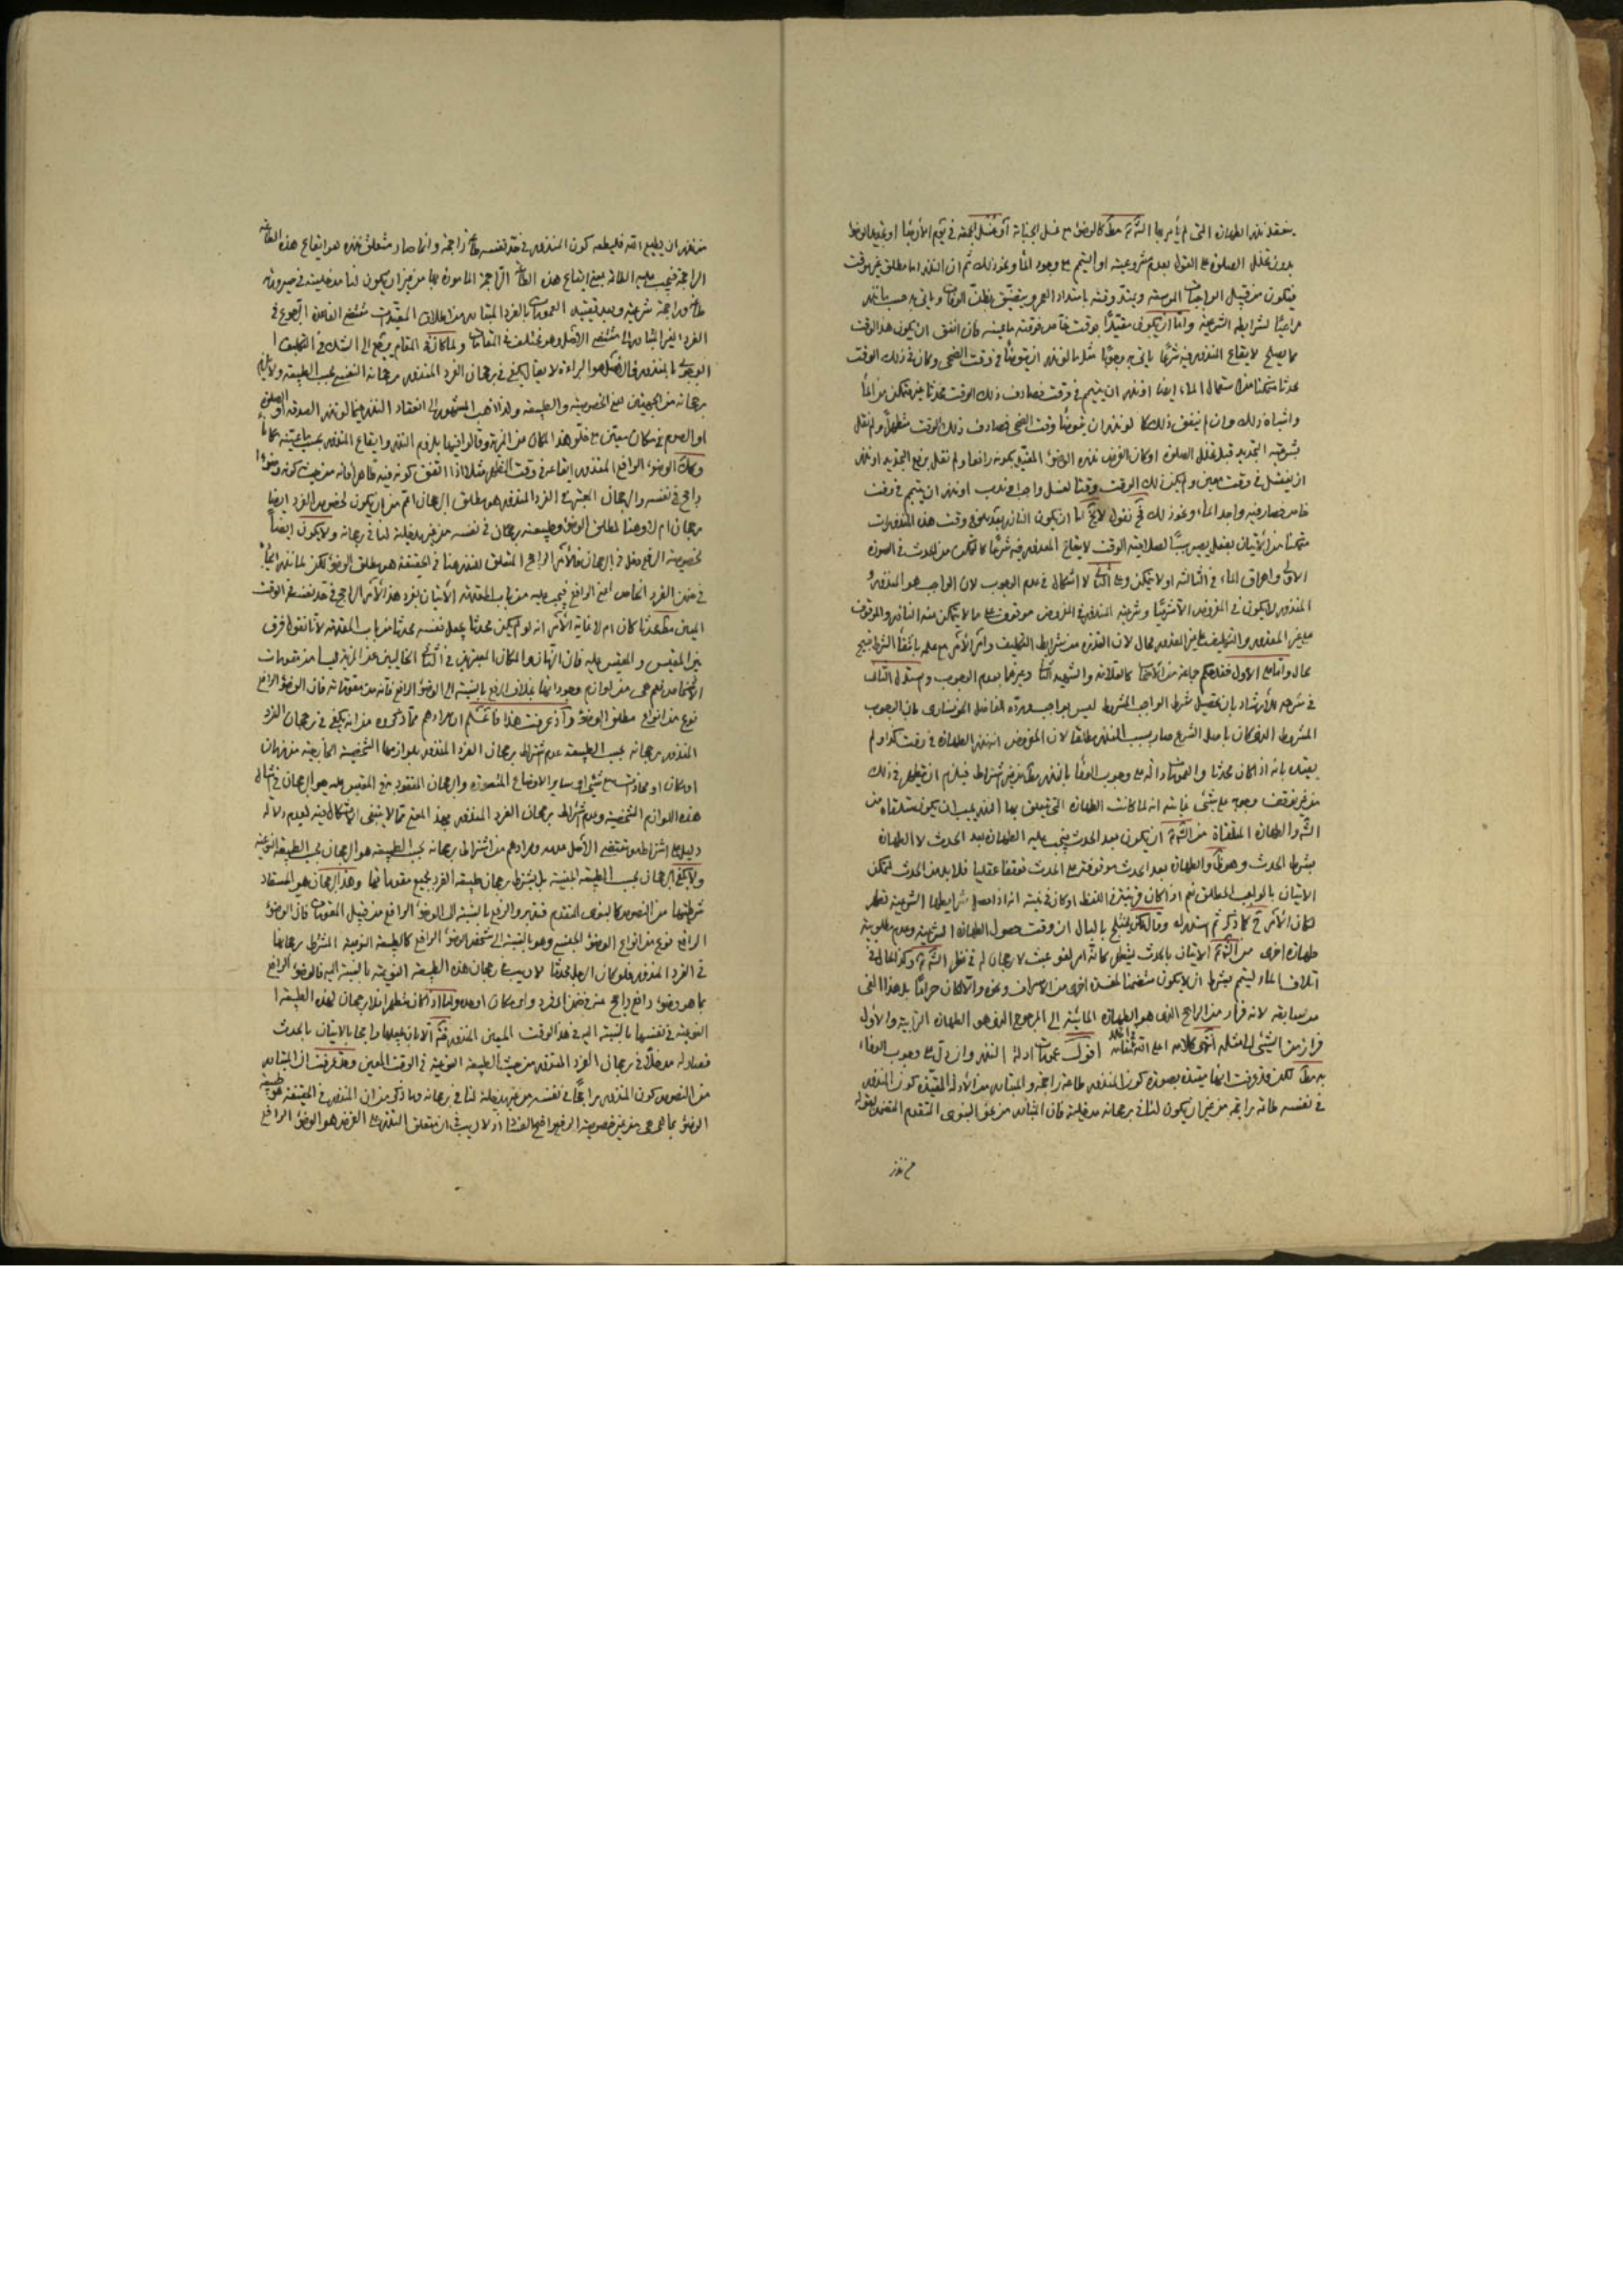 ينعقد نذر الطهارة التى لم يأمر بها الشرع مطلقا كالوضوء مع غسل الجنابة أو غسل الجمعة فى يوم الأربعاء او تجديد الوضوء
بدون تخلل الصلوة على القول بعدم مشروعيته او التيمم مع وجود الماء ونحو ذلك ثم ان النذر اما مطلق غير موقت
فيكون من قبيل الواجبات الموسعة ويمتد وقته بامتداد العمر ويتضيق بظن الوفات ويأتى به حسب ما نذر
مراعيا لشرايطه الشرعية واما ان يكون مقيدا بوقت خاص فوقته ما عينه فان اتفق ان يكون هذا الوقت
مما يصلح لايقاع المنذور فيه شرعا يأتى به وجوبا مثل ما لو نذر ان يتوضأ فى وقت الضحى وكان فى ذلك الوقت
محدثا متمكنا من استعمال الماء ايضا او نذر ان يتيمم فى وقت فصادف ذلك الوقت محدثا غير متمكن من الماء
واشباه ذلك وان لم يتفق ذلك كما لو نذر ان يتوضأ وقت الضحى فصادف ذلك الوقت متطهرا ولم نقل
بشرعية التجديد قبل تخلل الصلوة او كان الفرض نذره الوضوء المقيد بكونه رافعا ولم نقل برفع التجديد او نذر
ان يغتسل فى وقت معين ولم يكن ذلك الوقت وقتا لغسل واجب او مندوب او نذر ان يتيمم فى وقت
خاص فصار فيه واجد الماء ونحو ذلك فح نقول لا يخ اما ان يكون الناذر قبل دخول وقت هذه المنذورات
متمكنا من الاتيان بفعل يصير سببا لصلاحية الوقت لايقاع المنذور فيه شرعا كالتمكن من الحدث فى الصورة
الاولى واهراق الماء فى الثالثة او لا يتمكن وعلى الثانى لا اشكال فى عدم الوجوب لان الواجب هو المنذور و
المنذور لا يكون فى المفروض الا شرعيا وشرعية المنذور فى المفروض موقوف على ما لا يتمكن منه الناذر والموقوف
على غير المقدور غير مقدور والتكليف على غير المقدور محال لان القدرة من شرايط التكليف وامر الآمر مع علمه بانتفاء الشرط قبيح
محال واما على الاول فقد حكم جماعة من الاصحاب كالعلامة والشهيد الثانى وغيرهما بعدم الوجوب واستدل الثانى
فى شرحه للارشاد بان تحصيل شرط الواجب المشروط ليس بواجب ورده الفاضل الخونسارى بان الوجوب
المشروط الذى كان باصل الشرع صار بسبب النذر مطلقا لان المفروض انه نذر الطهارة فى وقت كذا ولم
يقيده بانه اذا كان محدثا والعمومات دالة على وجوب الوفاء بالنذر مطلقا من غير اشتراط فيلزم ان يتطهر فى ذلك
من غير توقف وجوبه على شىء غايته انه لما كانت الطهارة التى تتعلق بها النذر يجب ان يكون متلقاة من
الشرع والطهارة المتلقاة من الشرع ان يكون بعد الحدث فيجب عليه الطهارة بعد الحدث لا الطهارة
بشرط الحدث وهو ظاهر والطهارة بعد الحدث موقوفة على الحدث توقفا عقليا فلا بد من الحدث ليتمكن
الاتيان بالواجب المطلق نعم اذا كان قرينة فى اللفظ او كان فى نيته انه اذا حصل شرايطها الشرعية تطهر
لكان الامر ح كما ذكر ثم استدركه وقال لكن يختلج بالبال ان وقت حصول الطهارة الشرعية وعدم مطلوبية
طهارة اخرى من الشرع الاتيان بالحدث ليتطهر كأنه امر لغو عبث لا رجحان له فى نظر الشرع وكذا الحال فى
اتلاف الماء ليتيمم بشرط ان لا يكون متضمنا لمفسدة اخرى من الاسراف ونحوه والا لكان حراما بل هذا ادنى
من سابقه لانه فرار من الراجح الذى هو الطهارة المائية الى المرجوح الذى هو الطهارة الترابية والاول
فرار من الشىء الى مثله انتهى كلامه اعلى الله مقامه اقول عمومات ادلة النذر وان دل على وجوب الوفاء
به مطلقا لكن قد عرفت انها مقيدة بصورة كون المنذور طاعة راجحة والمتبادر من الأدلة المقيدة كون المنذور
فى نفسه طاعة راجحة من غير ان يكون للنذر فى رجحانه مدخلية فان المتبادر من نحو النبوى المتقدم المتضمن لقوله
من نذر
من نذر ان يطيع الله فليطعه كون المنذور فى حد نفسه طاعة راجحة وانما صار متعلق نذره هو ايقاع هذه الطاعة
الراجحة فيجب عليه الطاعة بمعنى ايقاع هذه الطاعة الراجحة المأمورة بها من غير ان يكون لنذره مدخلية فى صيرورته
طاعة وراجحة شرعية وبعد تقييد العمومات بالفرد المتبادر من اطلاق المقيدات مقتضى القاعدة الرجوع فى
الفرد الغير المتبادر الى مقتضى الاصل وهو مختلف فى المقامات ولما كان فى المقام يرجع الى الشك فى التكليف ا
الوجوبى بالمنذور فالاصل هو البراءة لا يقال يكفى فى رجحان الفرد المنذور رجحانه النفسى بحسب الطبيعة ولا يلزم
رجحانه من الجهتين معنى الخصوصية والطبيعة ولذا ذهب المشهور الى انعقاد النذر فيما لو نذر الصدقة او الصلوة
او الصوم فى مكان معين مع خلو هذا المكان من المزية وقالوا فيها بلزوم النذر وايقاع المنذور بحسب ما عينه مكانا
وكذا الوضوء الواقع المنذور ايقاعه فى وقت الظهر مثلا اذا اتفق كونه فيه طاهرا فانه من حيث كونه وضوءا
راجح فى نفسه والرجحان المعتبر فى الفرد المنذور هو مطلق الرجحان اعم من ان يكون لخصوص الفرد ايضا
رجحان ام لا وهنا لمطلق الوضوء وطبيعته رجحان فى نفسه من غير مدخلية لنذر فى رجحانه ولا يكون ايضا
لخصوصية الرافع دخل فى الرجحان فالامر الراجح المتعلق للنذر هنا فى الحقيقة هو مطلق الوضوء لكن لما نذر ايجاده
فى ضمن الفرد الخاص اعنى الرافع فيجب عليه من باب المقدمة الاتيان بفرد هذا الامر الراجح فى حد نفسه فى الوقت
المعين مطلقا محدثا كان ام لا غاية الامر انه لو لم يكن محدثا يجعل نفسه محدثا من باب المقدمة لانا نقول فرق
بين المقيس والمقيس عليه فان الزمان والمكان المعتبرين فى الثانى الخاليين عن المزية ليسا من مقومات
الاشخاص نعم هى من لوازم وجودها بخلاف الرافع بالنسبة الى الوضوء الرافع فانه من مقوماته فان الوضوء الرافع
نوع من انواع مطلق الوضوء واذ عرفت هذا فاعلم ان مرادهم مما ذكروه من انه يكفى فى رجحان الفرد
المنذور رجحانه بحسب الطبيعة عدم اشتراط رجحان الفرد المنذور بلوازمها الشخصية الخارجية من زمان
او مكان او محاذات مع شىء او ساير الاوضاع المتصورة والرجحان المفقود فى المقيس عليه هو الرجحان فى مثال
هذه اللوازم الشخصية وعدم اشتراط رجحان الفرد المنذور بهذا المعنى مما لا ينبغى الاشكال فيه لعدم دلالة
دليل على اشتراطه ومقتضى الاصل عدمه ومرادهم من اشتراط رجحانه بحسب الطبيعة هو الرجحان بحسب الطبيعة النوعية
ولا يكفى الرجحان بحسب الطبيعة الجنسية بل يشترط رجحان طبيعة الفرد بجميع مقوماتها وهذا الرجحان هو المستفاد
شرطيتها من النصوص كالنبوى المتقدم فتدبر والرفع بالنسبة الى الوضوء الرافع من قبيل المقومات فان الوضوء
الرافع نوع من انواع الوضوء الجنسى وهو بالنسبة الى شخص الوضوء الرافع كالطبيعة النوعية المشترط رجحانها
فى الفرد المنذور فلو كان الرجل محدثا لا ريب فى رجحان هذه الطبيعة النوعية بالنسبة اليه فالوضوء الرافع
بما هو وضوء رافع راجح منه فى ضمن اى فرد واى مكان اوجده واما اذا كان متطهرا فلا رجحان لهذه الطبيعة ا
النوعية فى نفسها بالنسبة اليه فى هذا الوقت المعين المنذور فيه الا بان يجعلها راجحا بالاتيان بالحدث
فصار له مدخلا فى رجحان الفرد المنذور من حيث الطبيعة النوعية فى الوقت المعين وقد عرفت ان المتبادر
من النصوص كون المنذور راجحا فى نفسه من غير مدخلية لنذر فى رجحانه وما ذكر من ان المنذور فى الحقيقة هو طبيعة
الوضوء بما هى هى من غير خصوصية الرفع واضح الفساد اذ لا ريب فى ان متعلق النذر على الفرض هو الوضوء الرافع